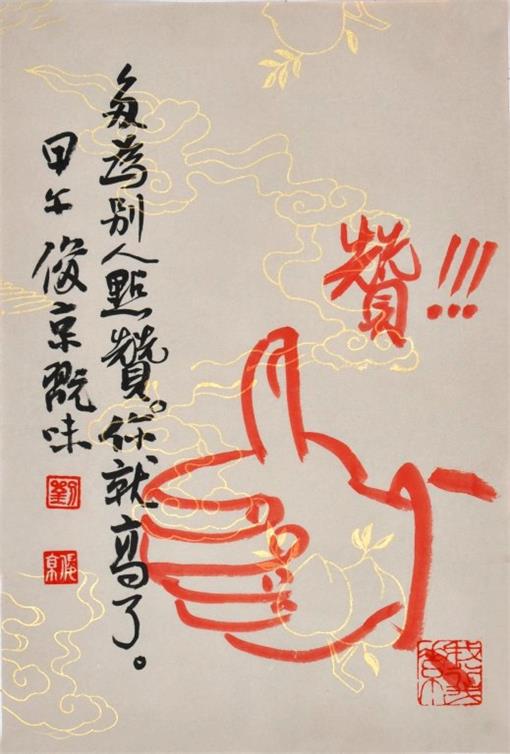 贊!!!
多為別人點贊。你就高了。
甲午 俊京翫味
劉
俊京